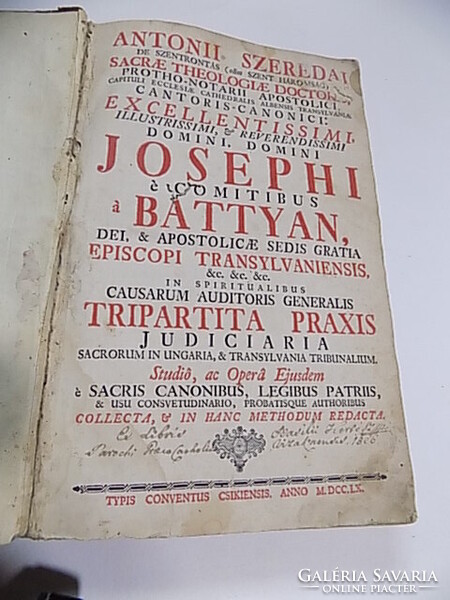 ANTONII SZEREDAI
DE SZENTRONTÁS (aliàs SZENT HÁROMSÁG)
SACRÆ THEOLOGIÆ DOCTOR
PROTHO-NOTARII APOSTOLICI,
CAPITULI ECCLESIÆ CATHEDRALIS ALBENSIS TRANSYLVANIÆ
CANTORIS-CANONICI:
EXCELLENTISSIMI,
ILLUSTRISSIMI, & REVERENDISSIMI
DOMINI, DOMINI
JOSEPHI
è COMITIBUS
à BATTYAN,
DEI, & APOSTOLICÆ SEDIS GRATIA
EPISCOPI TRANSYLVANIENSIS,
&c. &c. &c.
IN SPIRITUALIBUS
CAUSARUM AUDITORIS GENERALIS
TRIPARTITA PRAXIS
JUDICIARIA
SACRORUM IN UNGARIA, & TRANSYLVANIA TRIBUNALIUM.
Studiô, ac Operâ Ejusdem
è SACRIS CANONIBUS, LEGIBUS PATRIIS,
& USU CONSVETUDINARIO, PROBATISQUE AUTHORIBUS
COLLECTA, & IN HANC METHODUM REDACTA.
Ex Libris Basilii
Parochi
TYPIS CONVENTUS CSIKIENSIS. ANNO M.DCC.LX.
GALÉRIA SAVARIA
ONLINE PIACTÉR